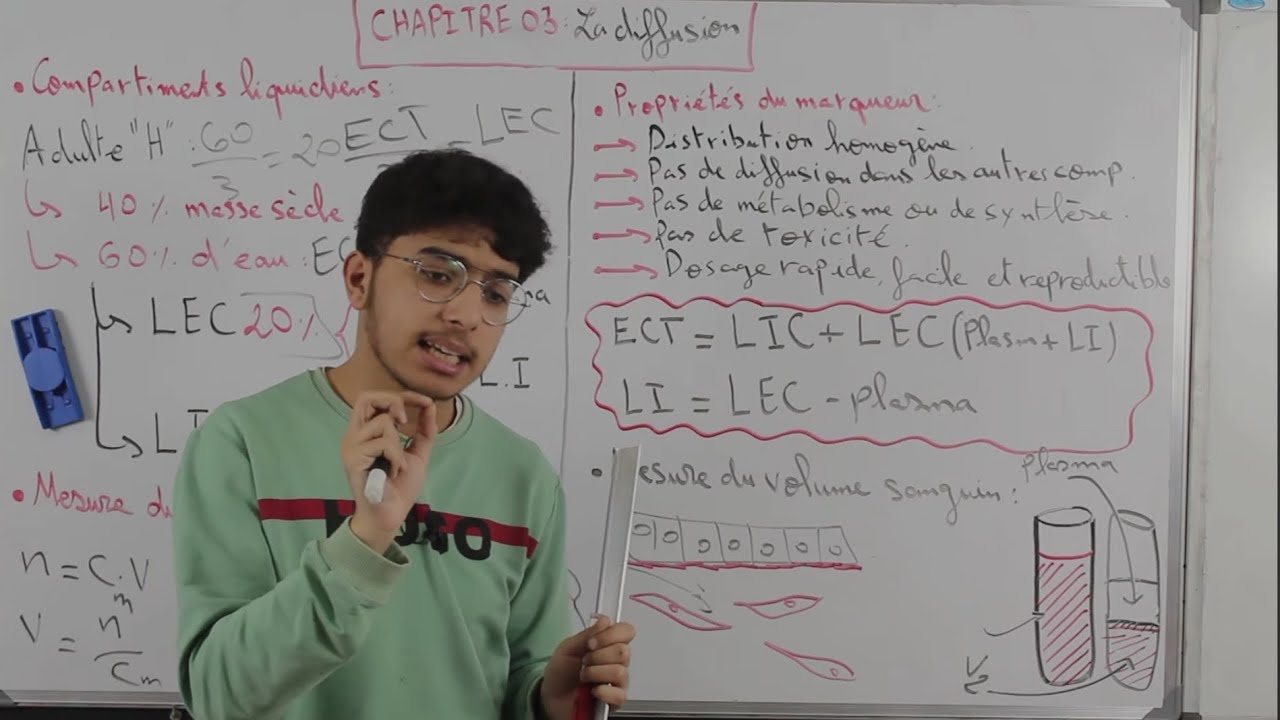 CHAPITRE 03: La diffusion
• Compartiments liquidiens:
Adulte "H" : 60/3 = 20 ECT LEC
↳ 40% masse sèche
↳ 60% d'eau : EC
↳ LEC 20%
L.I
↳ LI
• Mesure du
n = C.V
V = nm/Cm
• Propriétés du marqueur:
→ Distribution homogène.
→ Pas de diffusion dans les autres comp.
→ Pas de métabolisme ou de synthèse.
→ Pas de toxicité.
→ Dosage rapide, facile et reproductible
ECT = LIC + LEC (Plasm + LI)
LI = LEC - plasma
• Mesure du volume sanguin:
plasma
HUGO